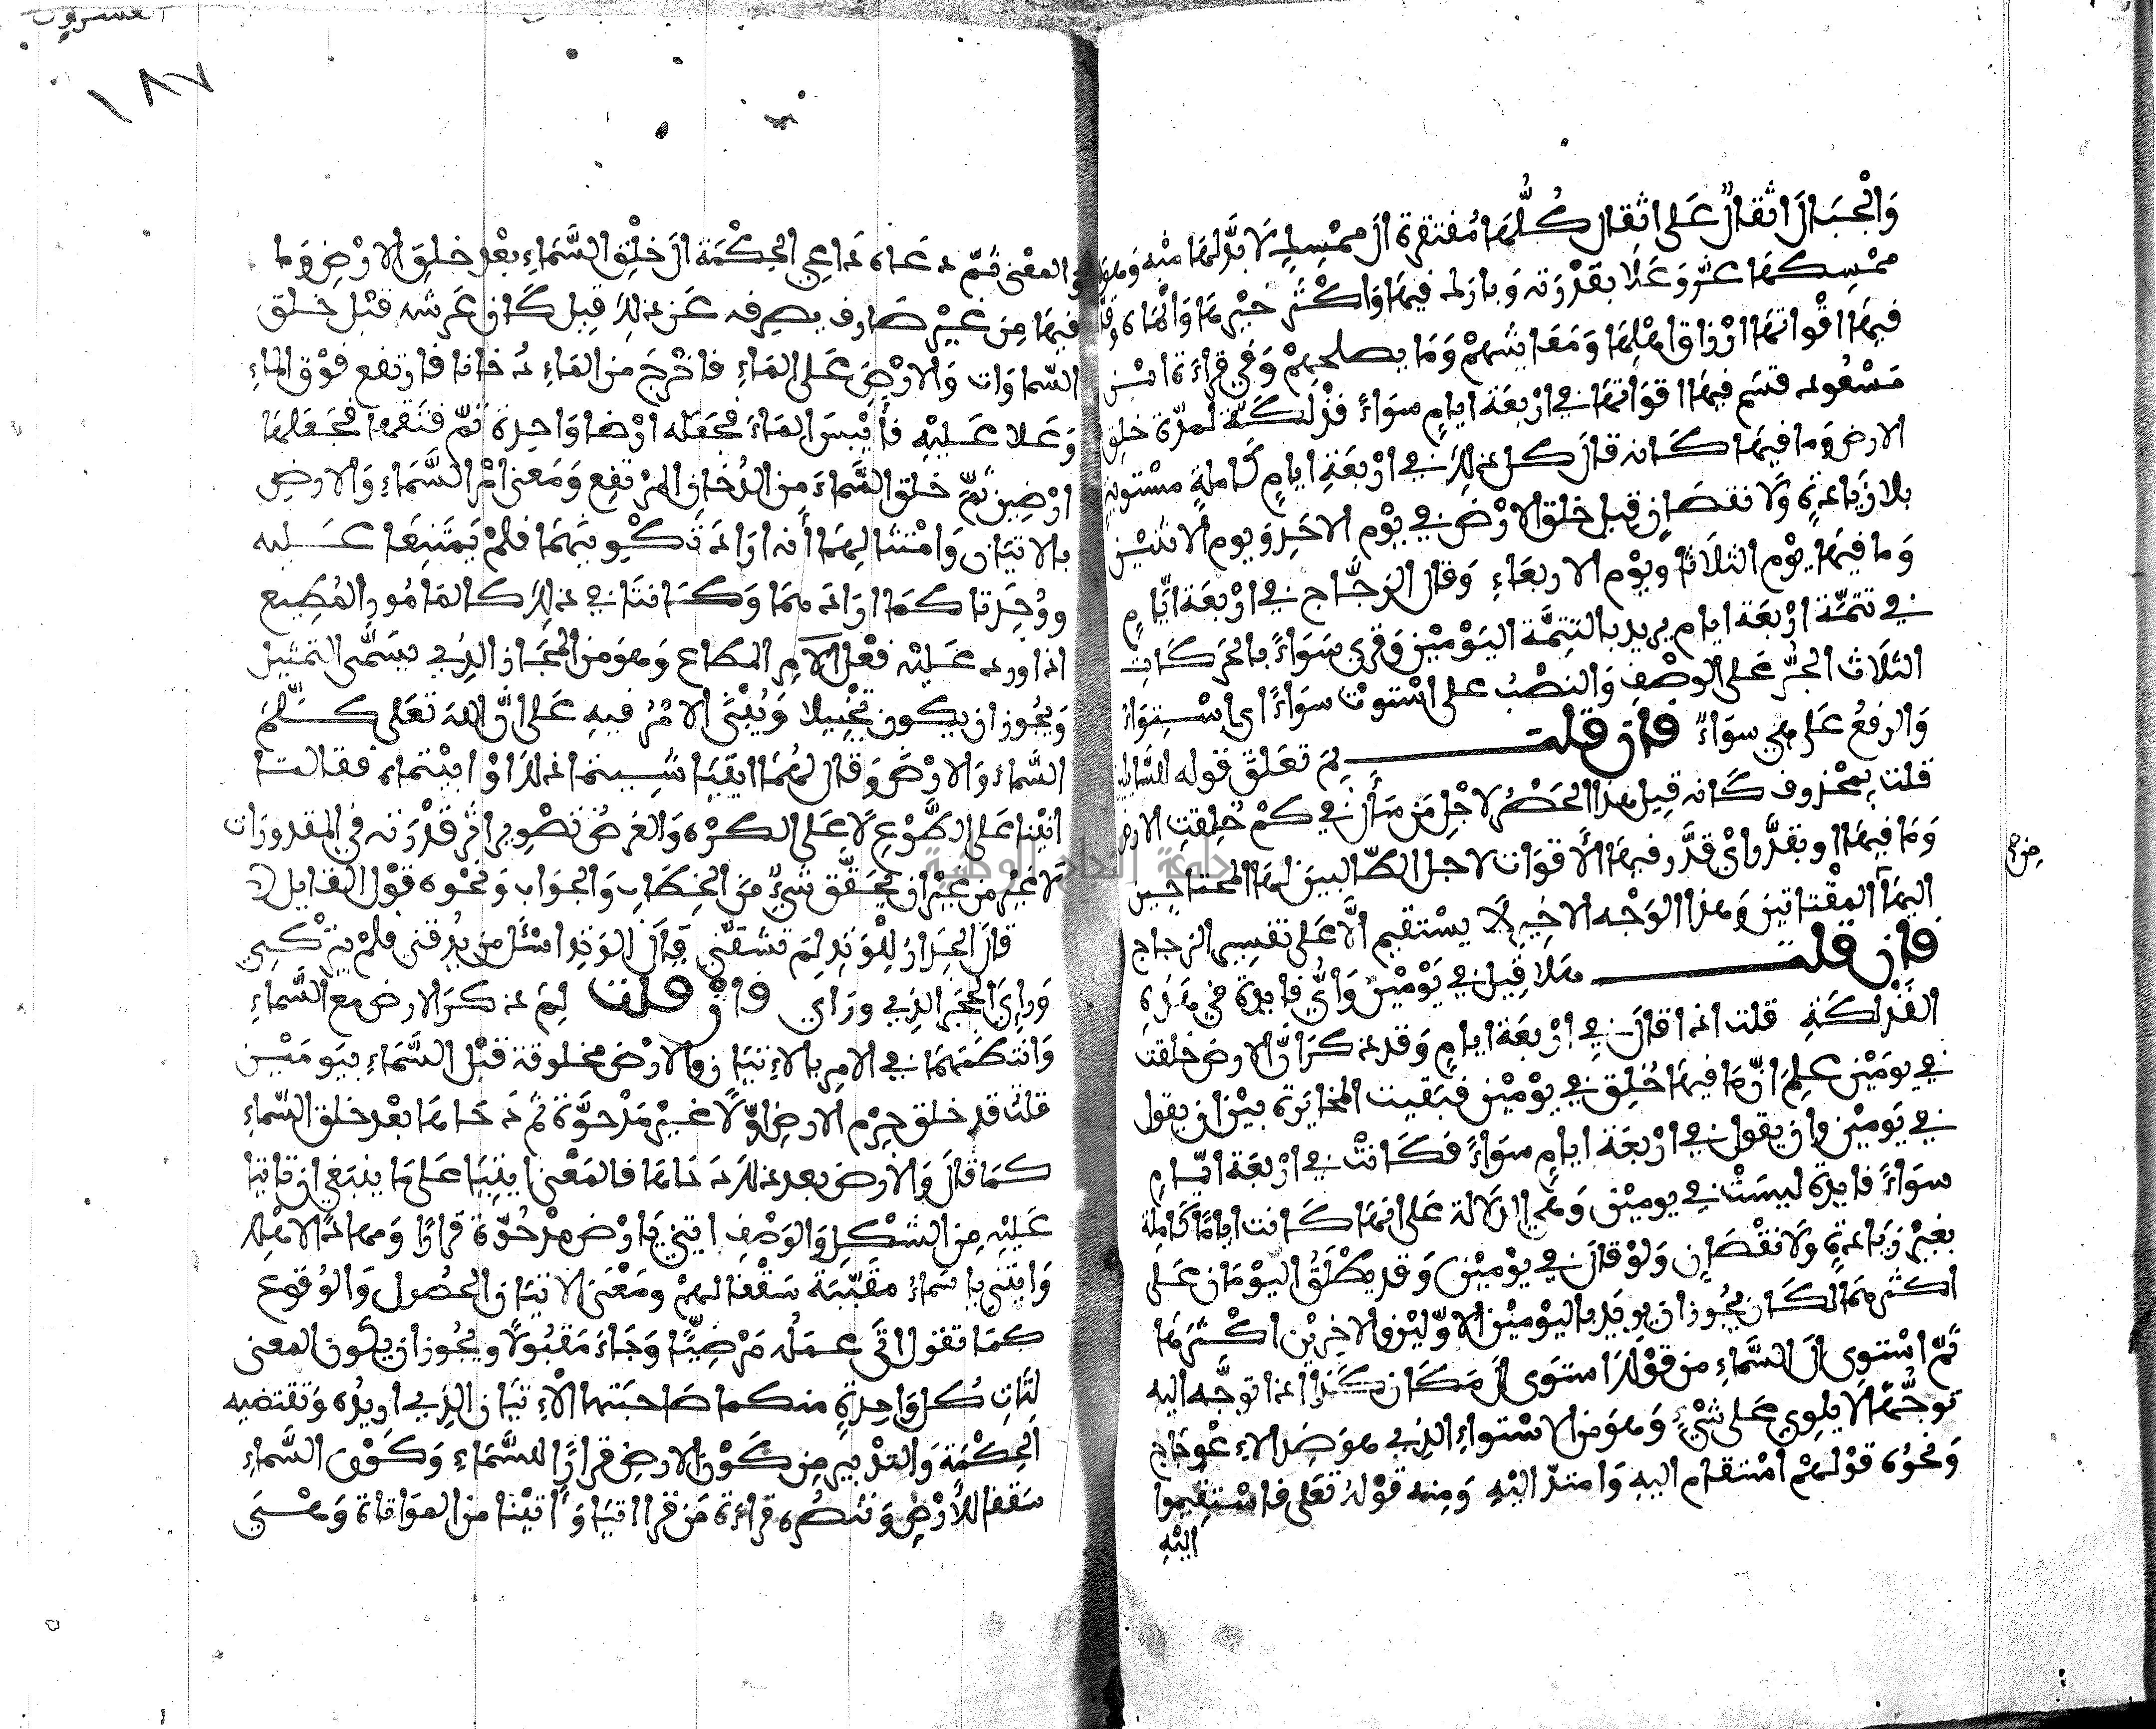 وَالْجِبَالَ اثقالٌ عَلى اثقال كُلُّهَا مُفتقرة الَى ممْسِكٍ لَا بدَّ لهَا منْه وَهوَ
ممْسِكهَا عَزَّ وَعَلَا بقدْرَته وَبارك فيهَا وَاكْثَر خَيْرهَا وَانماه وقدَّر
فيهَا اقْواتهَا ارْزاق اهْلِهَا وَمَعَايشهمْ وَمَا يصلحهمْ وَفي قرَاءَة ابْنِ
مَسْعُود قسَم فيهَا اقوَاتهَا في ارْبعَة ايامٍ سوَاءً فذْلكَة لمدّة خلق
الارض وَما فيهَا كَانه قالَ كل ذلك في ارْبعَة ايامٍ كَاملةٍ مسْتويةٍ
بلا زيَادةٍ وَلا نقصَانٍ قيل خلق الارْضَ في يوْم الاحَد وَيوم الاثنَيْن
وَما فيهَا يوْم الثلَاثَا ويوْم الاربعَاءِ وَقال الزجَّاج في ارْبعَة ايَّامٍ
في تتمَّة ارْبعَة ايام يريد بالتتمَّة اليَوْميْن وَقري سَوَاءً بالحرَكَات
الثلَاث الجرُّ عَلى الوصْفِ وَالنصْبُ على اسْتوتْ سوَاءً اي اسْتِوَاءً
وَالرفعُ عَلى هي سوَاءٌ فان قلت لِمَ تعَلق قوله للسَّايلين
قلت بمحْذوف كَانه قيل هذا الحَصْر لاجْل مَن سَأَل في كمْ خُلقت الارض
وَمَا فيهَا او بقدَّر اي قدَّر فيهَا الأَقوَات لاجل الطَّالبينَ لهَا المحتاجين
اليهَا المقْتاتين وَهذا الوَجْه الاخير لَا يسْتقيم الَّا عَلى تفسِير الزجاج
فان قلت هَلا قيل في يَوْميْن وَايُّ فايدة في هَذهِ
الفَذلكَةِ قلت اذا قالَ في ارْبعَة ايامٍ وَقد ذكرَ انَّ الارض خلقت
في يوميْن علمَ انَّ مَا فيهَا خُلق في يوْميْن فبَقيت المخايَرة بيْن ان يقول
في يَوْميْن وان يقول في ارْبعَة ايامٍ سوَاءً فكَانتْ في ارْبعَة ايّامٍ
سوَاءً فايدة ليسَتْ في يوميْن وَهي الدلَالة عَلى انهَا كَانت ايامًا كَاملة
بغيْر زيَادةٍ ولا نقْصَانٍ وَلوْ قالَ في يوْميْن وَقد يُطْلَقُ اليوْمَان عَلى
اكثرهمَا لكَان يجُوز ان يريد باليوْميْن الاوّليْن والاخريْن اكثَرهمَا
ثمَّ اسْتوى الى السَّماءِ من قوْلك استوَى الَى مَكَان كَذا اذا توجَّه اليه
توَجُّهًا لا يلوِي عَلى شيْءٍ وَهوَ من الاسْتواءِ الذِي هوَ ضد الاعْوجَاج
وَنحوُه قوْلهمْ اسْتقام اليهِ وَامتدّ اليْهِ وَمنه قوْلهُ تعَلى فاسْتقيموا
اليْهِ
العشرون
١٨٧
وَالمعْنى ثمَّ دعَاه دَاعِي الحِكْمَة الَى خلْقِ السَّمَاءِ بعْد خلقِ الارْضِ وَما
فيهَا مِن غيْر صَارف يصرِفه عَن ذلك قيل كَان عَرشه قبْل خلق
السّماوَات وَالارْضِ عَلى المَاءِ فاخْرَجَ من المَاءِ دُخانا فارتفع فوْق الماءِ
وَعَلا عَليْهِ فأيْبسَ المَاءَ فجعَله ارْضا وَاحِدة ثمَّ فتَقهَا فجَعَلهَا
ارْضِين ثمَّ خلق السَّماءَ مِن الدُخَان المرْتفِع وَمَعنى امْر السَّمَاءِ وَالارضِ
بالاتيَان وَامْتثالهمَا أنه ارَادَ تكْوينَهمَا فلمْ يَمْتَنِعَا عَليه
ووُجِدَتا كمَا ارَادَهمَا وَكَانتَا في ذلك كالمَامُور المُطِيع
اذا وردَ عَليْه فعْل الآمِر المطاع وَهوَ من المجَاز الذي يسَمَّى التمثيل
وَيجُوز ان يكون تخْييلا وَيُبْنَى الامْرُ فيهِ عَلى انَّ اللهَ تعَلى كلَّمَ
السَّماءَ وَالارْضَ وَقال لهُمَا ايتيَا شيتمَا ذلك اوْ ابيْتماه فقالتا
اتيْنا عَلى الطَّوْعِ لَا عَلى الكرْه وَالغرضُ تصْوِير اثر قدْرَته في المقدورَات
لا غيْر من غيْر ان يُحَقَّق شيْءٌ مَن الخِطَاب وَالجوَاب وَنحْوه قوْل القايل
قالَ الجِدَارُ لِلْوَتِد لِمَ تشقّني قالَ الوَتِد اسْئَل من يدُقني فلمْ يترْكني
وَرايَ الحجَر الذي ورَاي فانْ قلت لِمَ ذكرَ الارض مع السَّماءِ
وَانتظمَهمَا في الامر بالاتيَان والارْض مخلوقة قبْل السَّمَاءِ بيَومَيْن
قلتُ قد خلق جِرْم الارض اوّلًا غيْر مَدْحوَّة ثمَّ دَحَاهَا بعْد خلق السَّماءِ
كمَا قالَ وَالارْضَ بعد ذلك دَحَاهَا فالمَعْنى ايتِيَا عَلى مَا ينبَغي ان تاتيا
عَليْهِ مِن الشكْلِ وَالوَصْفِ ايتي يَا ارْض مدْحُوّة قرارًا وَمهَادًا لاهْلك
وَايتي يا سَماءُ مقَبَّبَة سَقْفا لهمْ ومَعْنى الاتيَان الحصُول وَالوُقوع
كمَا تقول اتَى عمَلُه مَرْضِيًّا وَجَاءَ مَقبُولًا ويجُوز ان يكُون المعنى
لتَاتِ كُل وَاحِدةٍ منكما صَاحبَتها الْاتيَان الذي اريدُه وَتقتضيه
الحِكْمَة وَالتدْبير مِن كَوْن الارضِ قرارًا للسَّمَاءِ وَكَوْن السَّماءِ
سَقفا للأرْضِ وَتنصُره قراءَة مَن قرا اتيَا وَآتيْنا من المؤاتاة وَهْيَ